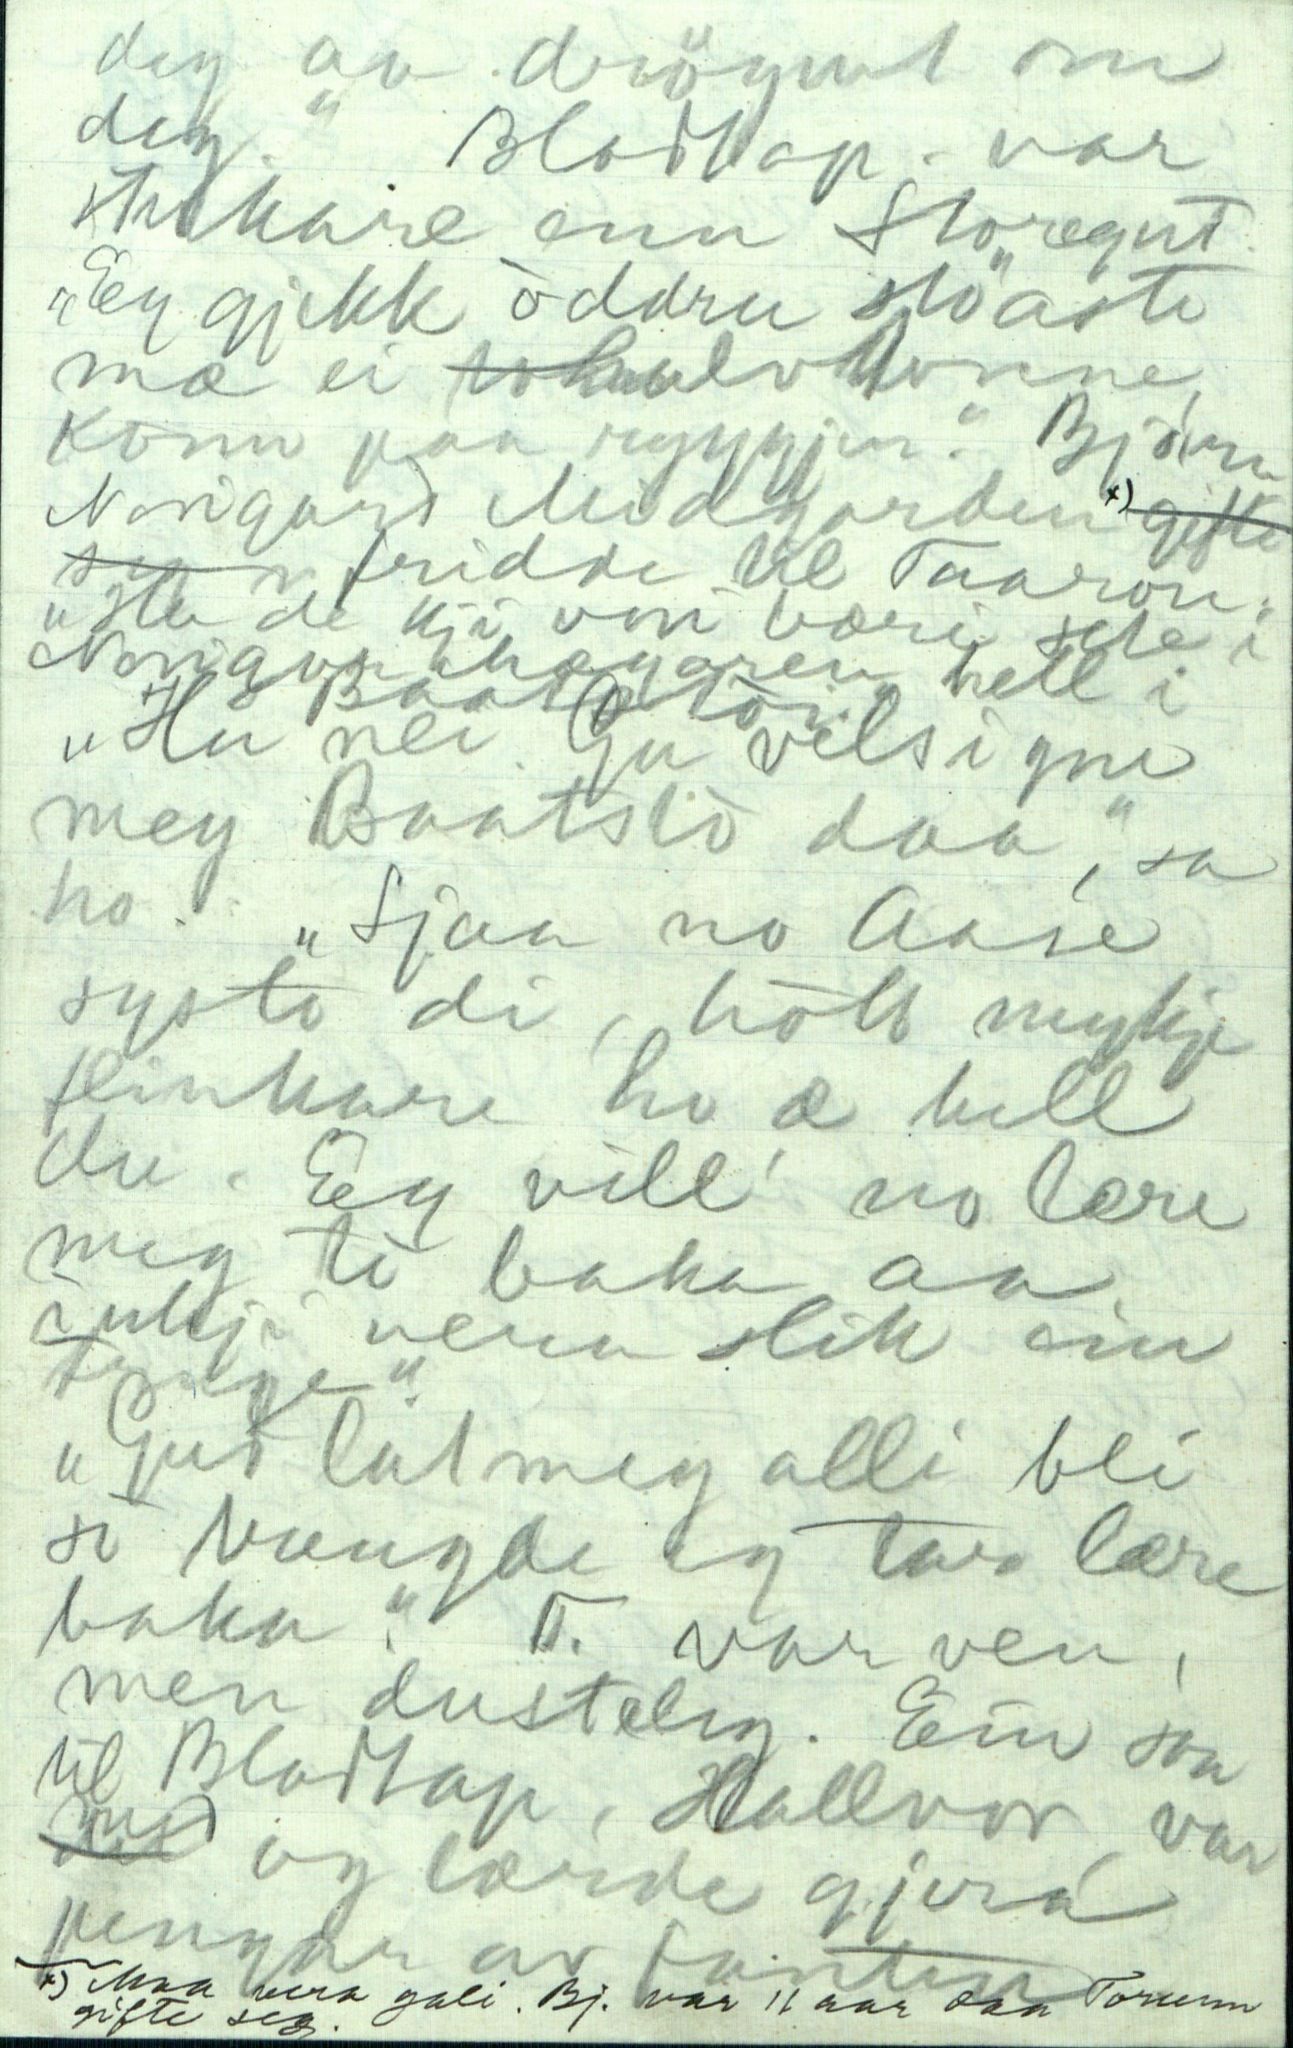 deg av drögmt om
deg." Blodtap. var
sterkare enn Storegut.
"Eg gjekk öddru stöaste
mæ ei tvohalvtonne,
Konn paa ryggjen." Björn
Norigard Midgarden x) gifte
seg n fridde til Taaron:
"Ha de kji vori bæri sete i
Norigarshægaren hell i
Baatstö."
"Hu nei Gu velsigne
meg Baatstö daa," sa
ho. "Sjaa no Aase
systo di, hött mykje
flinkare ho æ hell
du. Eg vill' no lære
meg te baka aa
inkji vera slik ein
"Gud lat meg alli bli
so trengde eg tar lære
baka." T. var ven,
men dusteleg. Ein son
til Blodtap, Hallvor, var
med og lærde gjera
pengar av fanten
x) Maa vera gali. Bj. var 11 aar daa Torunn
gifte seg.